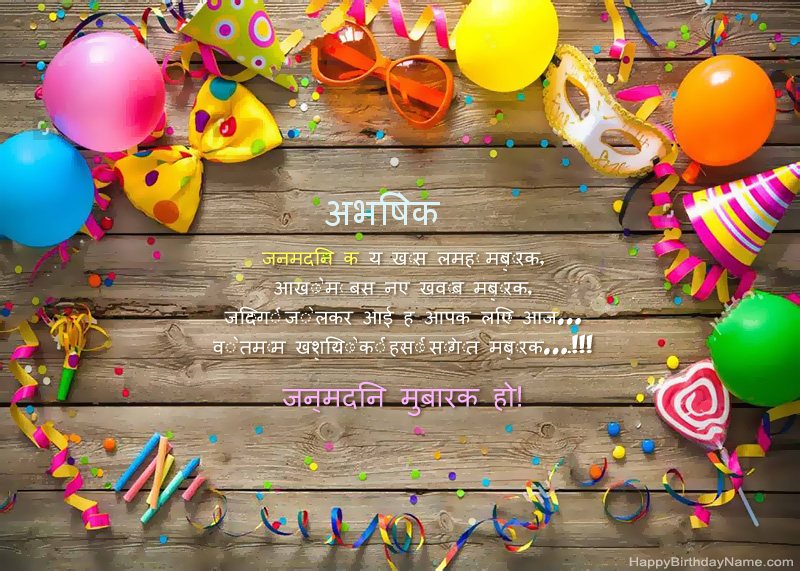 अभषिक
जनमदनि क य खास लमह मबारक,
आखो म बस नए खवाब मबारक,
जदिगी जो लकर आई ह आपक लएि आज...
वो तमाम खशयिो की हसी सौगात मबारक...!!!
जन्मदनि मुबारक हो!
HappyBirthdayName.com